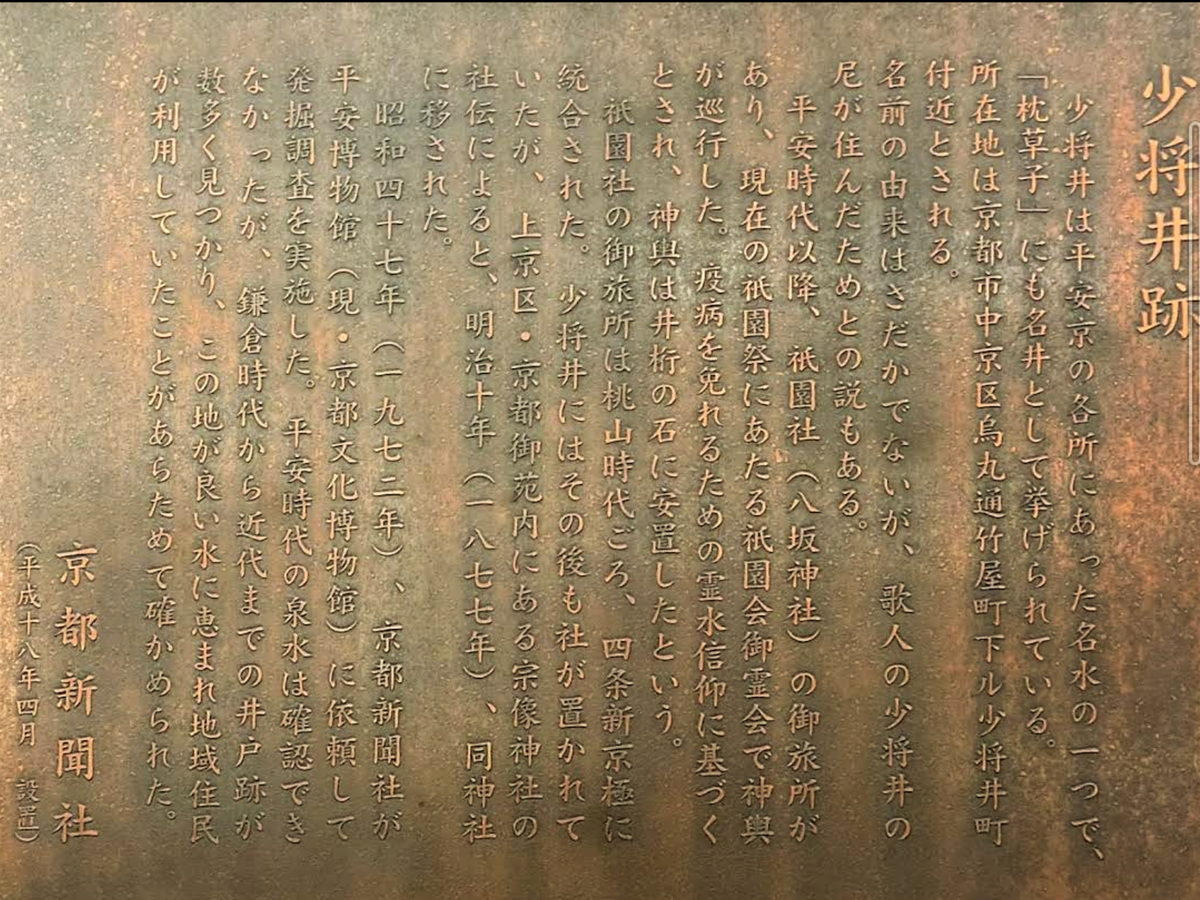 少将井跡
少将井は平安京の各所にあった名水の一つで、
「枕草子」にも名井として挙げられている。
所在地は京都市中京区烏丸通竹屋町下ル少将井町
付近とされる。
名前の由来はさだかでないが、歌人の少将井の
尼が住んだためとの説もある。
平安時代以降、祇園社（八坂神社）の御旅所が
あり、現在の祇園祭にあたる祇園会御霊会で神輿
が巡行した。疫病を免れるための霊水信仰に基づく
とされ、神輿は井桁の石に安置したという。
祇園社の御旅所は桃山時代ごろ、四条新京極に
統合された。少将井にはその後も社が置かれて
いたが、上京区・京都御苑内にある宗像神社の
社伝によると、明治十年（一八七七年）、同神社
に移された。
昭和四十七年（一九七二年）、京都新聞社が
平安博物館（現・京都文化博物館）に依頼して
発掘調査を実施した。平安時代の泉水は確認でき
なかったが、鎌倉時代から近代までの井戸跡が
数多く見つかり、この地が良い水に恵まれ地域住民
が利用していたことがあらためて確かめられた。
京都新聞社
（平成十八年四月 設置）